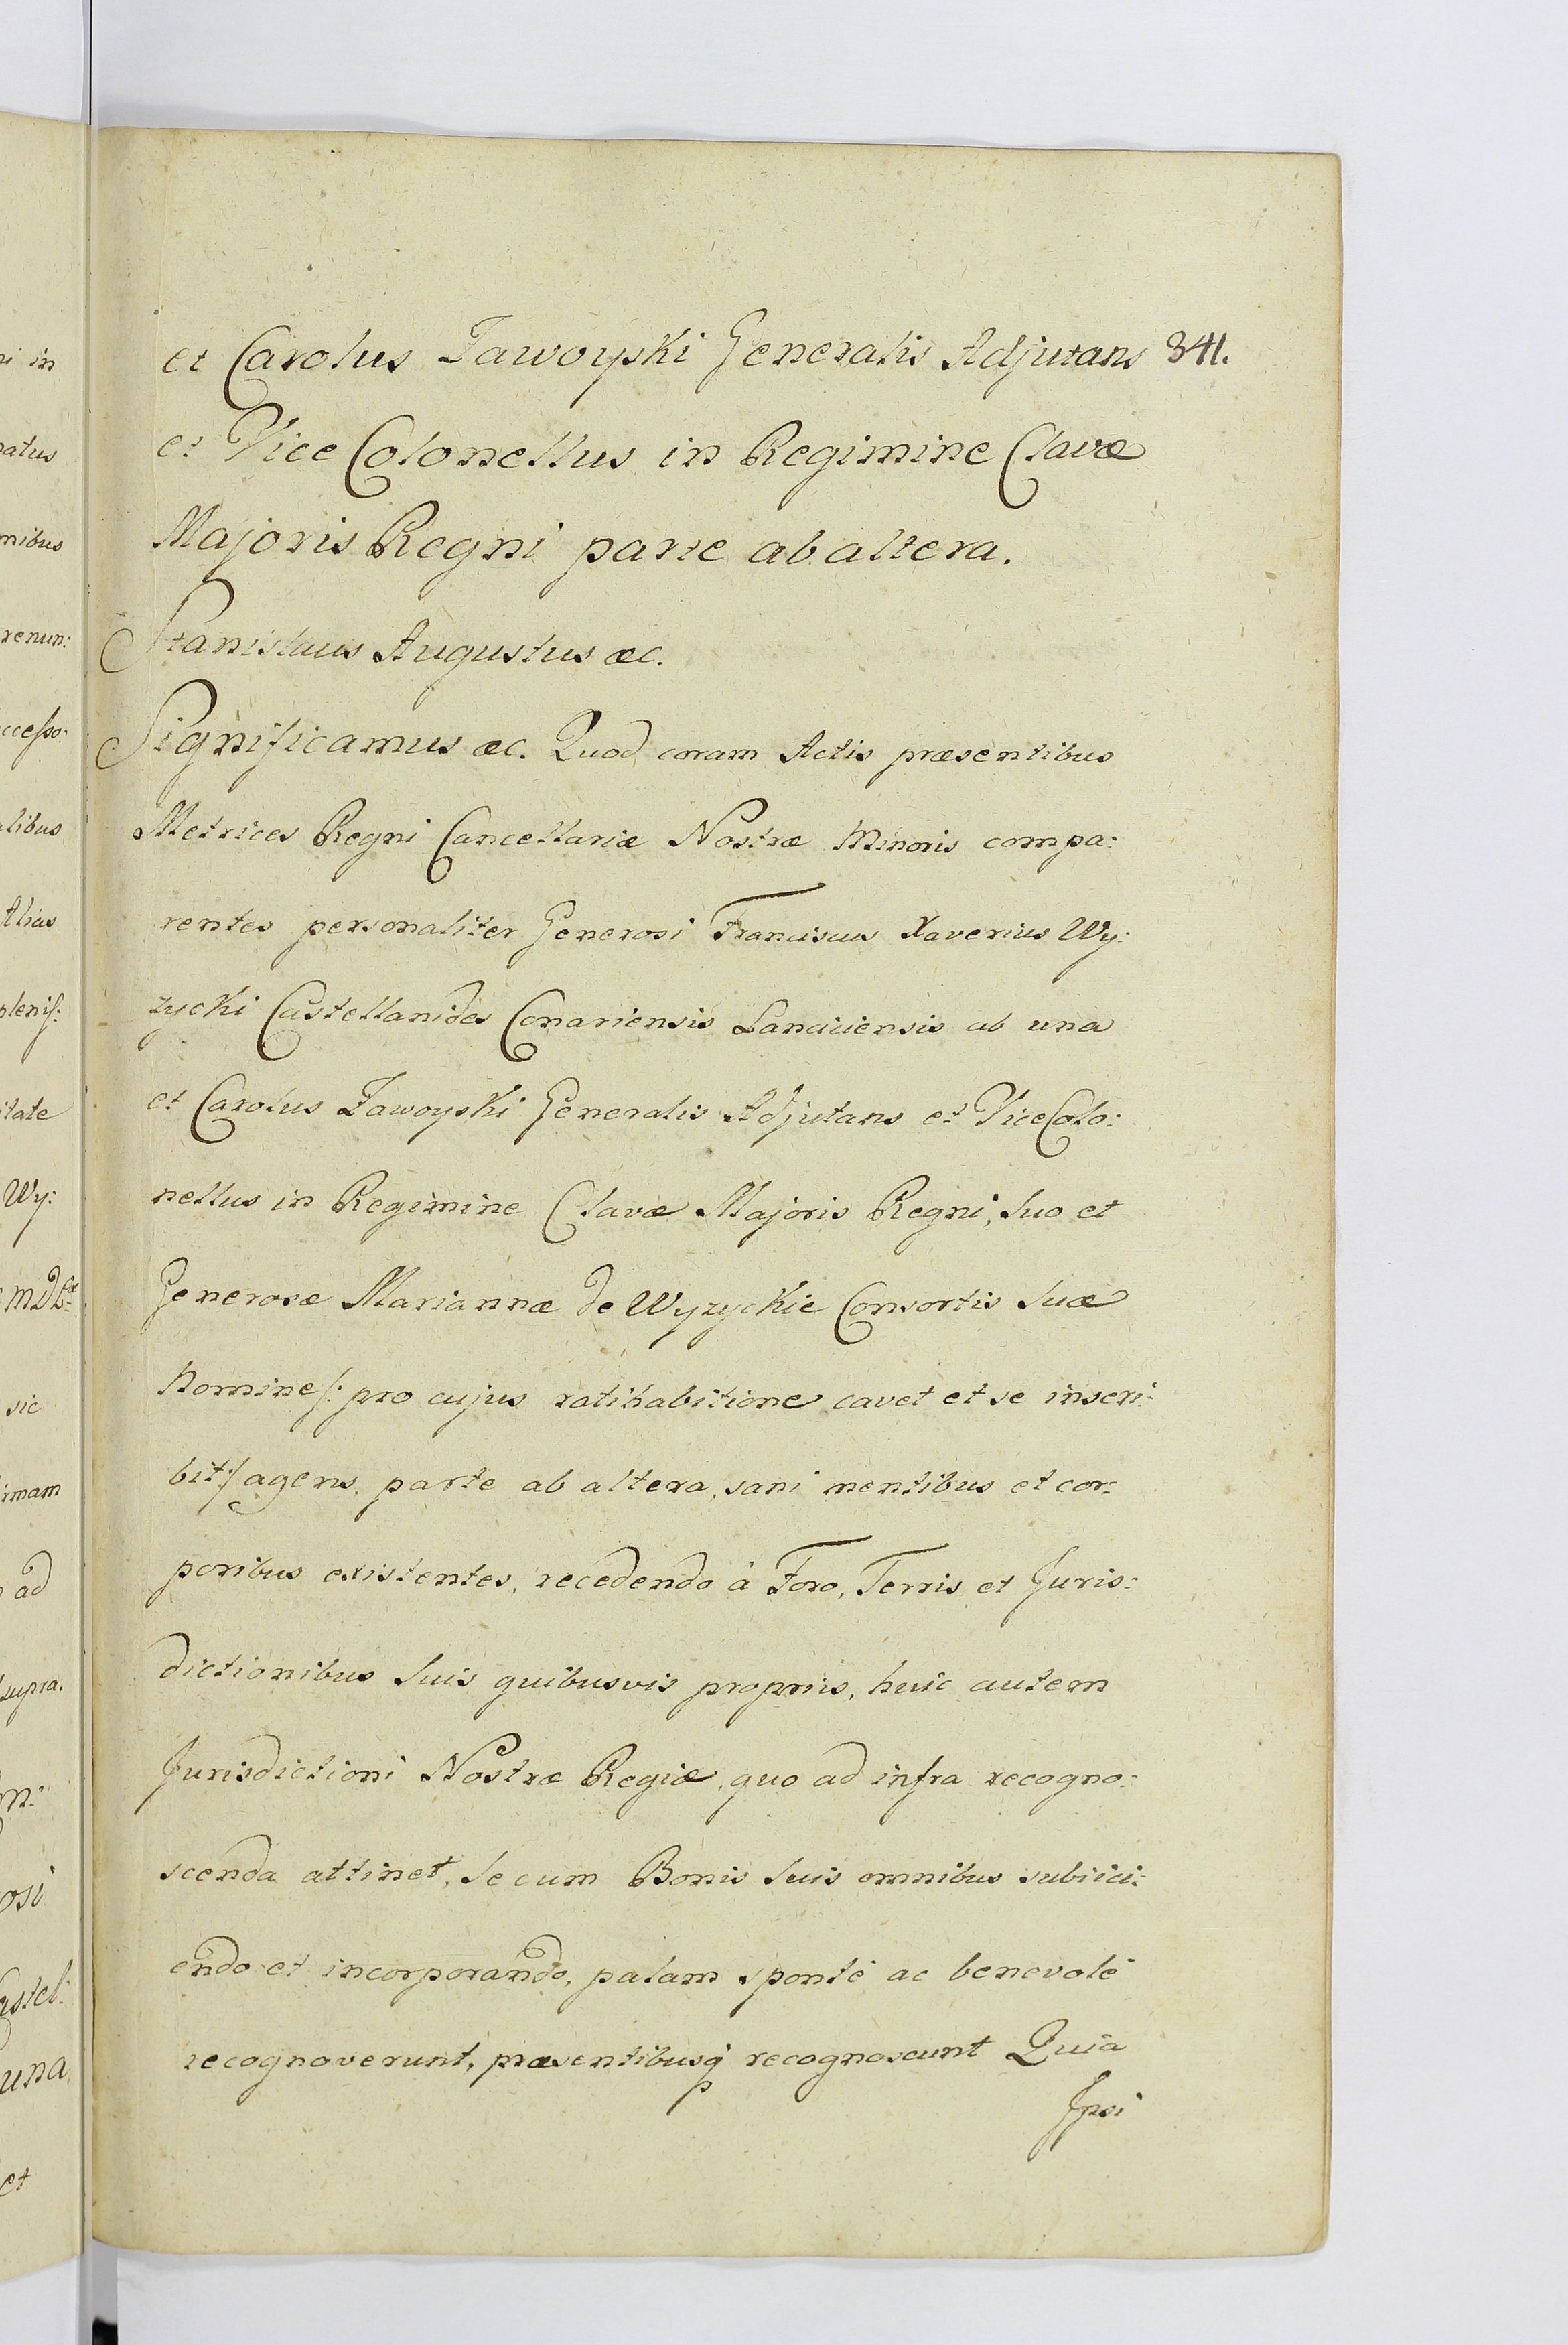 et Carolus Zawoyski Generalis Adjutans 341.
et Vice Colonellus in Regimine Clavæ
Majoris Regni parte ab altera.
Stanislaus Augustus æc.
Significamus æc. Quod coram Actis præsentibus
Metrices Regni Cancellariæ Nostræ Minoris compa:
rentes personaliter Generosi Franciscus Xaverius Wy:
zycki Castellanides Conariensis Lanciciensis ab una
et Carolus Zawoyski Generalis Adjutans et Vice Colo:
nellus in Regimine Clavæ Majoris Regni, suo et
Generosæ Mariannæ de Wyzyckie Consortis suæ
Nomine /: pro cujus ratihabitione cavet et se inscri:
bit :/ agens, parte ab altera, sani mentibus et cor:
poribus existentes, recedendo à Foro, Terris et Juris:
dictionibus suis quibusvis propriis, huic autem
Jurisdictioni Nostræ Regiæ, quo ad infra recogno:
scenda attinet, se cum Bonis suis omnibus subiici:
endo et incorporando, palam spontè ac benevolè
recognoverunt, præsentibusq recognoscunt Quia
Ipsi
ni in
natus
mnibus
renun:
ccesso:
alibus
Alias
plenis:
itate
Wy:
sic
irmam
ad
supra.
m:
osi
astel:
una
et